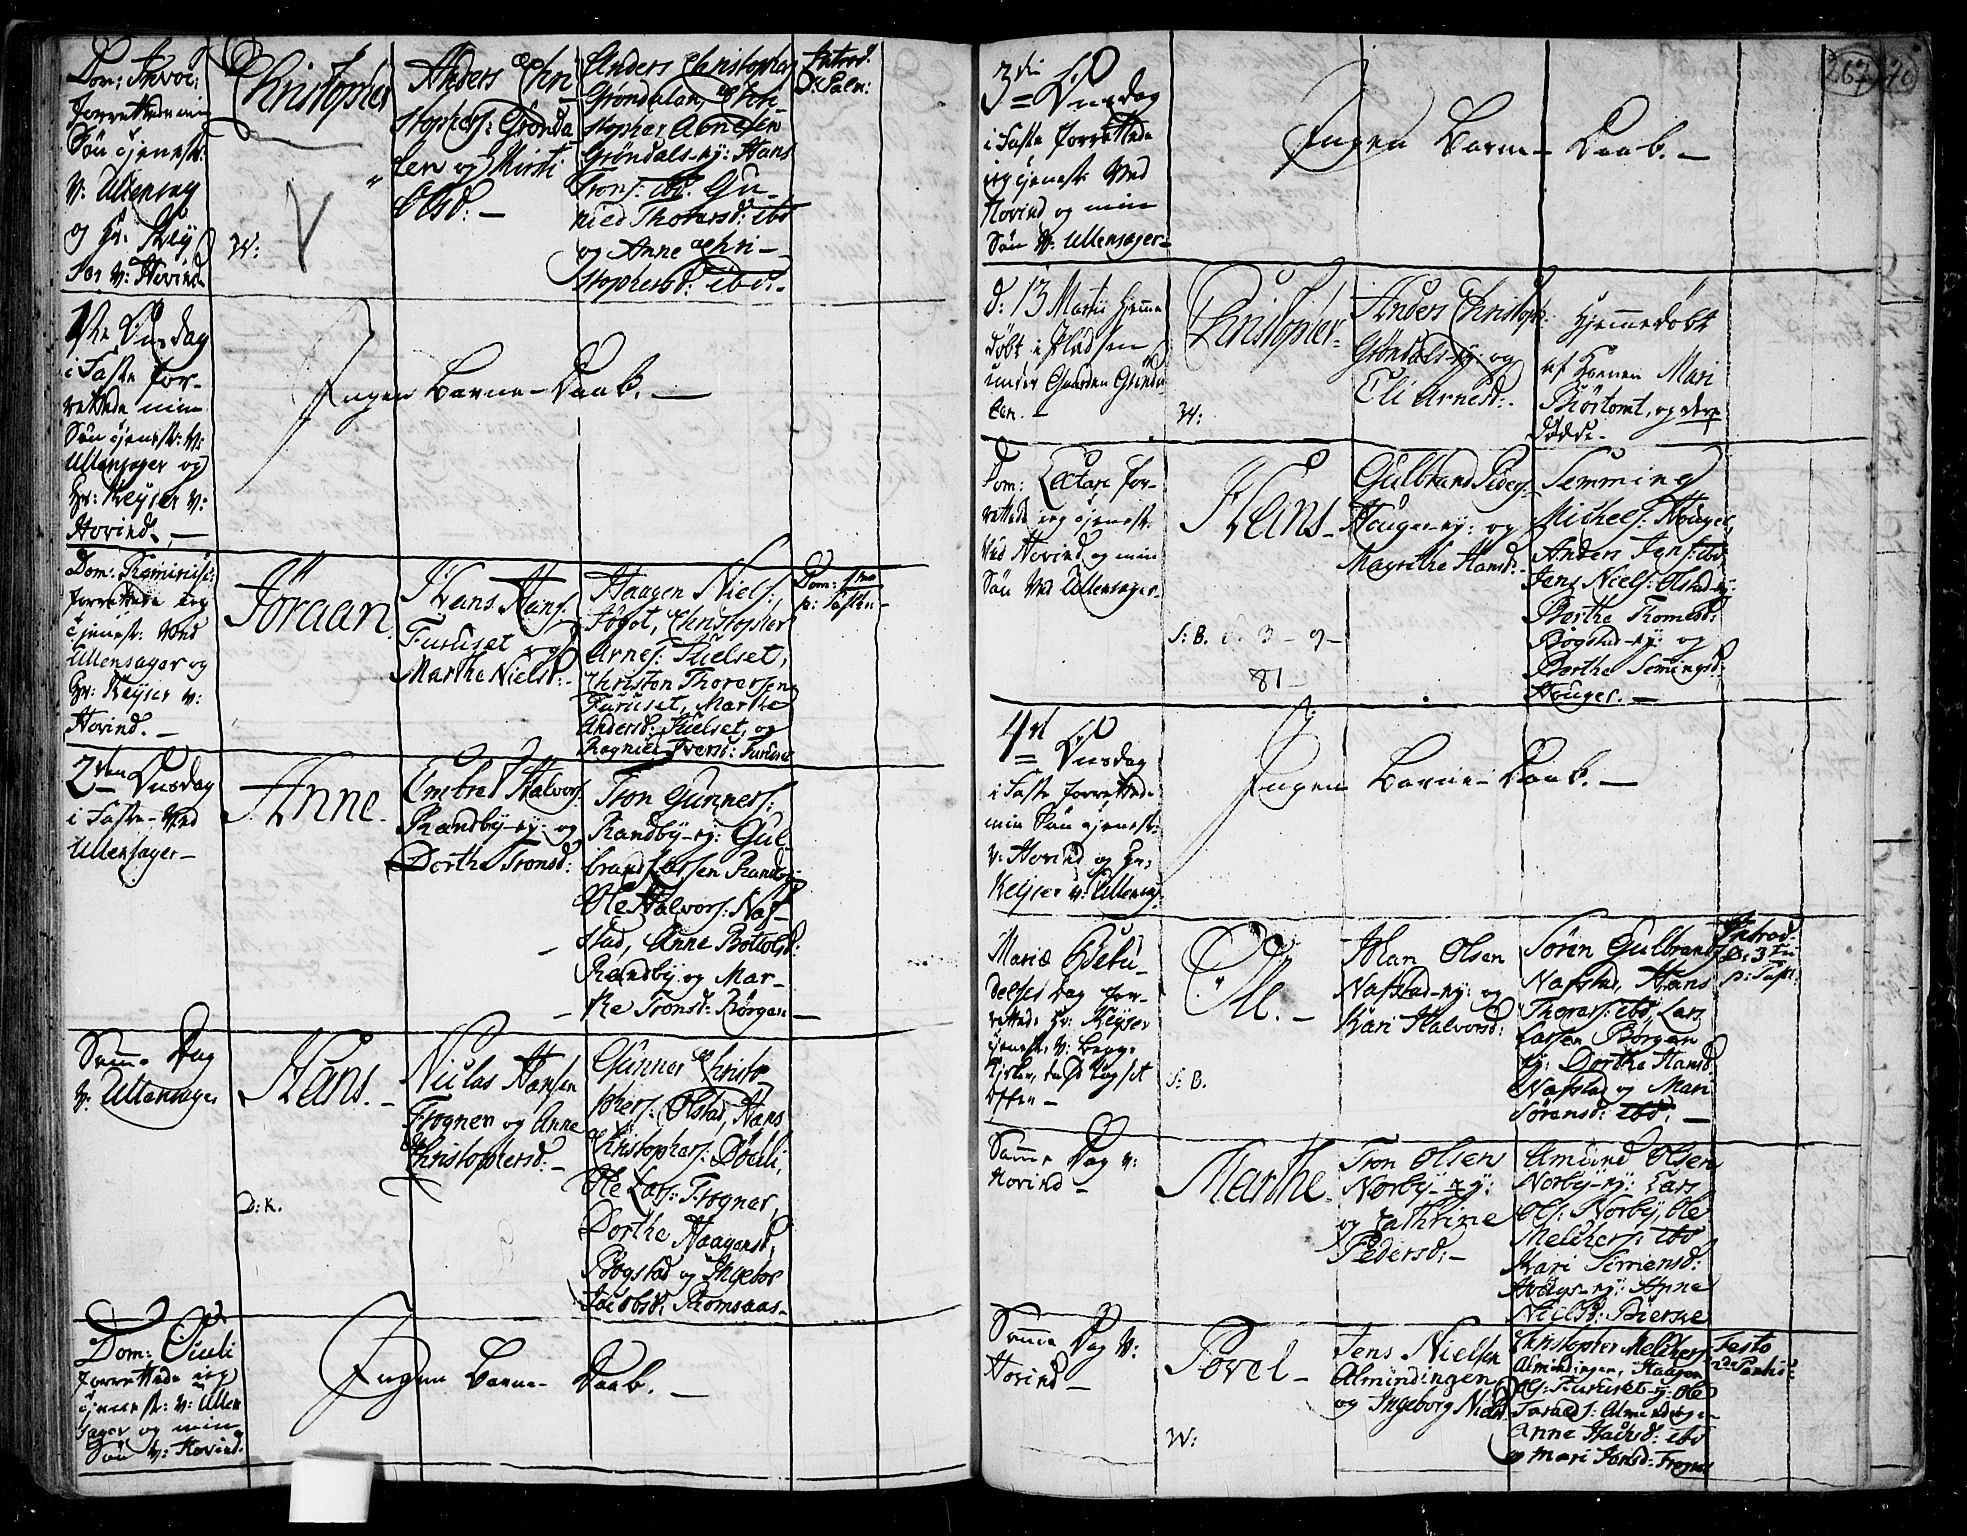 Dom: Invoc:
forrettede min
Søn tjenest:
v: Ullensag
og Hr: Key
ser v: Hovind
Christopher
W:
Anders Chri
stophers: Grønda
len og Kirsti
Olsd: –
Anders Christophers
Grøndalen, Chri-
stopher Arnesen
Grøndals-ej: Hans
Trons: ibd: Gu-
nild Thorersd: ibd
og Anne Chri-
stophersd: ibd:
Introd:
D: Palm:
1ste Onsdag
i Faste for-
rettede min
Søn tjenest: v:
Ullensager og
Hr: Keyser v:
Hovind. –
Ingen Barne-Daab. –
Dom: Reminisc:
forrettede ieg
tjenest: ved
Ullensager og
Hr: Keyser v:
Hovind. –
Jöraan
Hans Hans:
Furuset og
Marthe Nielsd: –
Haagen Niels:
Søgot, Christopher
Arnes: Kielset,
Christen Thorersen
Furuset, Marthe
Andersd: Kielset, og
Ragnild Iversd: Furuset
Dom: 1ma
p: Pasken
2den Onsdag
i Faste – ved
Ullensager –
Anne
Embret Halvors:
Randby-ej: og
Dorthe Tronsd:
Tron Gunners:
Randby-ej: Gul
brand Larsen Randby
Ole Halvors: Naf-
stad, Anne Botolsd:
Randby og Mar-
the Tronsd: Børgen –
Samme Dag
v: Ullensager
Hans. –
D: K.
Niculas Hansen
Frogner og Anne
Christophersd: –
Gunner Christo
phers: Olstad, Hans
Christophers: Døhli,
Ole Lars: Frogner,
Dorthe Haagensd:
Bøgstad og Ingebor
Jacobsd: Romsaas –
Dom: Oculi
forrettede ieg
tjenest: v: Ullen
sager og min
Søn v: Hovind.
Ingen Barne-Daab. –
267
70
3die Onsdag
i Faste forrettede
ieg tjenest: ved
Hovind og min
Søn v: Ullensager –
Ingen Barne-Daab. –
d: 13 Martii hjemme
døbt i Pladsen
under Gaarden Grønda
len. –
Christopher –
W:
Anders Christoph:
Grøndals-ej: og
Eli Arnesd:
Hjemmedøbt
af Konen Mari
Bøstomt, og derp
døde. –
Dom: Lætare for-
rettede ieg tjenest:
ved Hovind og min
Søn ved Ullensager –
Hans –
S: B. d. 3 – 9 –
81
Gulbrand Peders:
Houger-ej: og
Magrethe Hansd:
Semming
Michels: Houger,
Anders Jens: ibd
Jens Niels: Olstad-ej:
Berthe Thomesd:
Bøgstad-ej: og
Berthe Semingsd:
Houger. –
4de Onsdag
i Faste forrettede
min Søn tjenest:
v: Hovind og Hr:
Keyser v: Ullensag:
Ingen Barne-Daab. –
Mariæ Bebu-
delses Dag for-
rettede Hr: Keyser
tjenest: v: begge
Kirker,
Offer –
Ole. –
S: B.
Johan Olsen
Nafstad-ej: og
Kari Halvorsd:
Søren Gulbrands:
Nafstad, Hans
Thorers: ibd, Lars
Larsen Børgen
ej: Dorthe Hansd:
Nafstad og Mari
Sørensd: ibd. –
Introd:
D: 3tia
p: Pasc:
Samme Dag v:
Hovind –
Marthe –
Tron Olsen
Nørby-ej:
og Cathrine
Pedersd: –
Amund Olsen
Norby-ej: Lars
Ols: Norby, Ole
Melchers: ibd
Kari Simensd:
Anne
Nielsd: Bierke
Samme Dag v:
Hovind –
Povel –
W:
Jens Nielsen
Almindingen
og Ingeborg Nielsd
Christopher Melchers:
Almindingen, Haagen
Ols: Furuset-ej: Ole
Almindingen
Anne Isachsd: ibd
og Mari Jonsd: Frogner
Festo